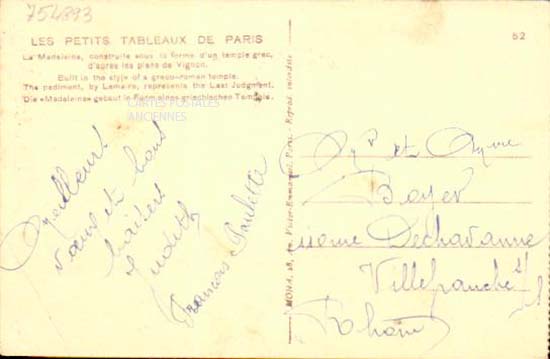 754893
LES PETITS TABLEAUX DE PARIS
52
La Madeleine, construite sous la forme d'un temple grec,
d'après les plans de Vignon.
Built in the style of a greco-roman temple.
The pediment, by Lemaire, represents the Last Judgment.
Die «Madeleine» gebaut in Form eines griechischen Tempels.
CARTES POSTALES
ANCIENNES
Meilleurs
vœux et bons
baisers
François Paulette
MONA, 28, Av. Victor-Emmanuel, Paris. - Reprod. interdite
Mr et Mme
Boyer
Dechavanne
Villefranche s/
Rhône